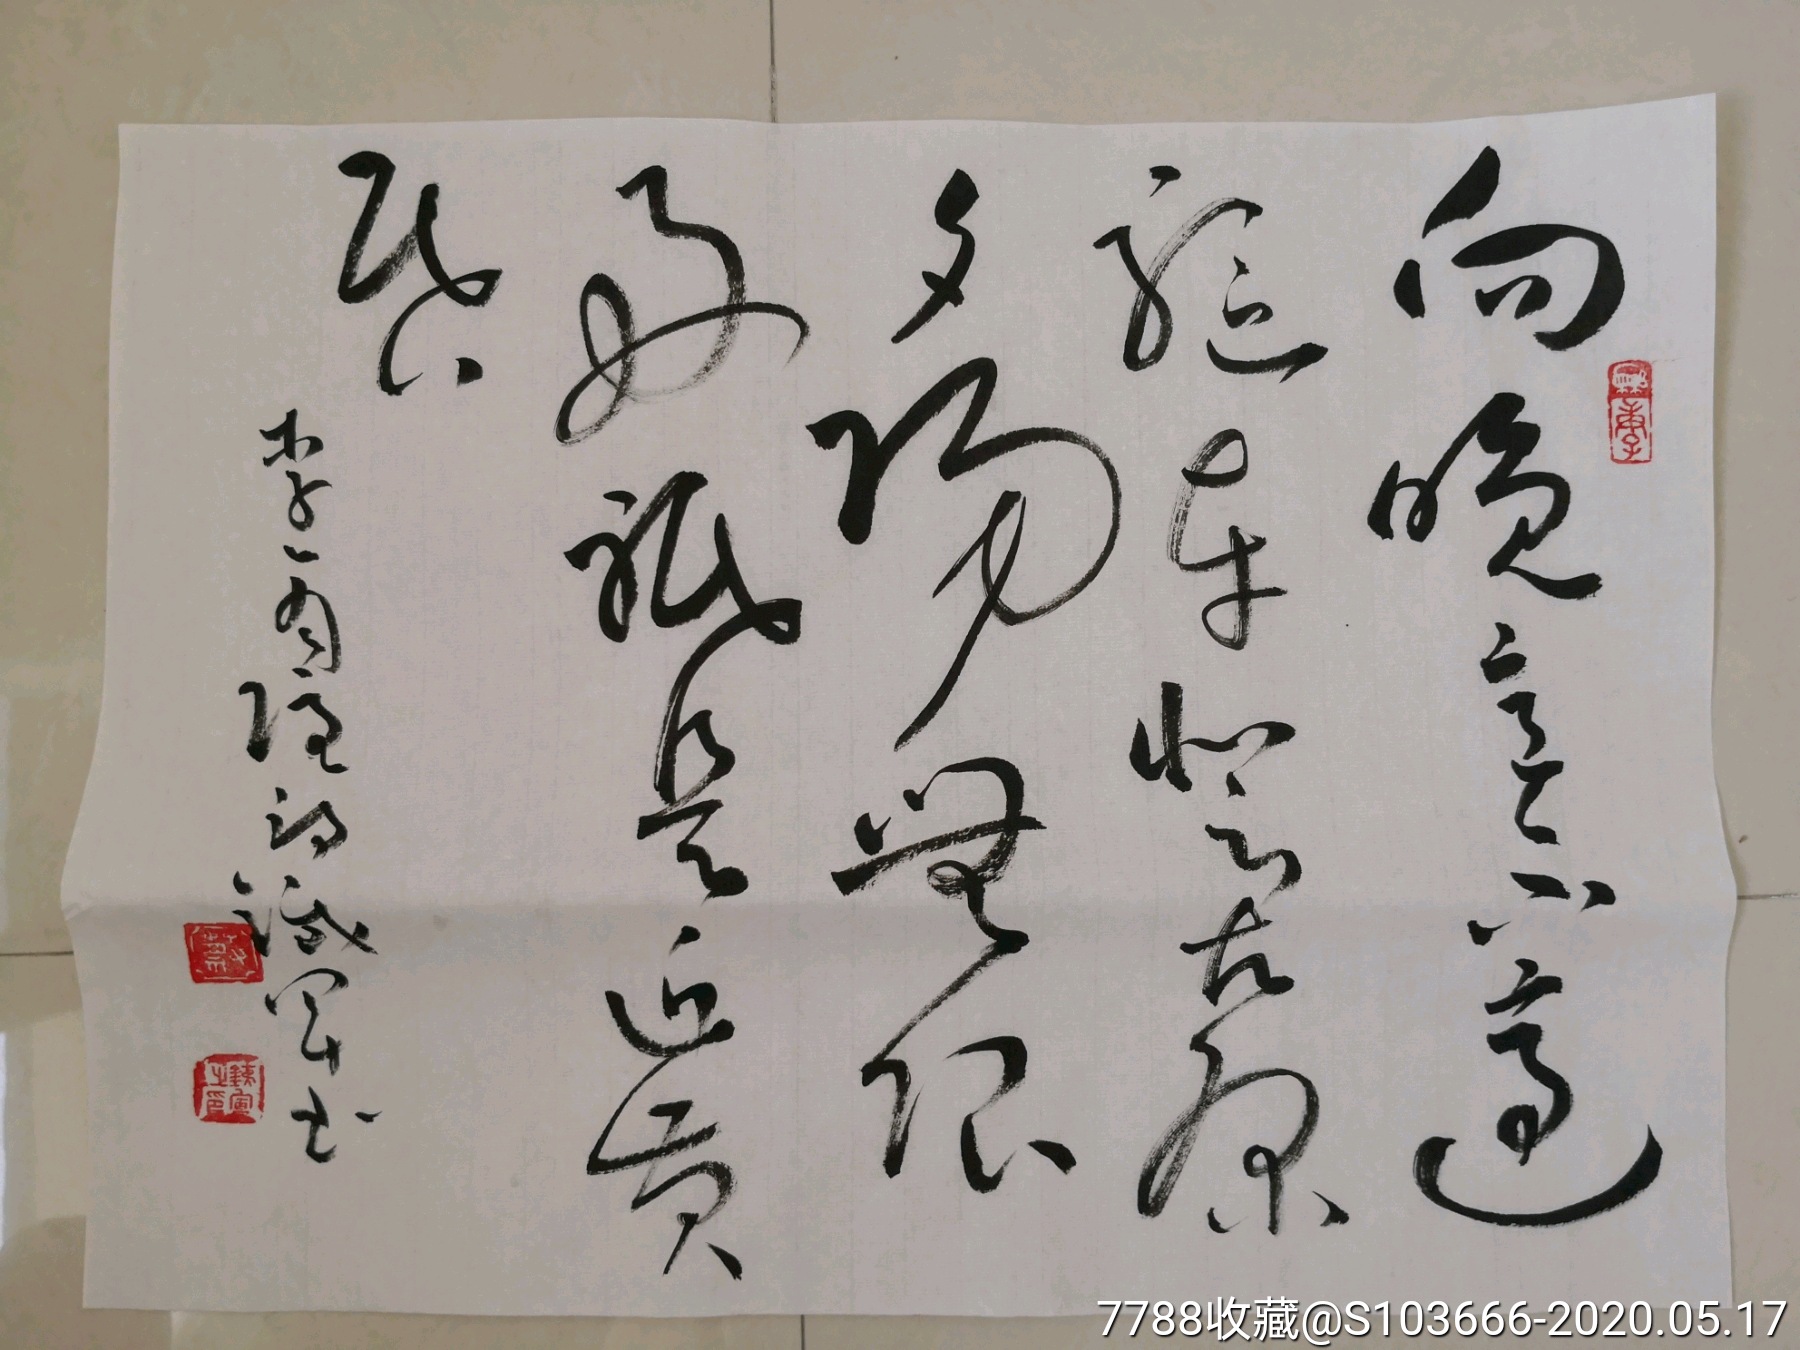 向晚意不適
驅車登古原
夕陽無限
好祇是近黄
昏
李商隱詩 书
7788收藏@S103666-2020.05.17